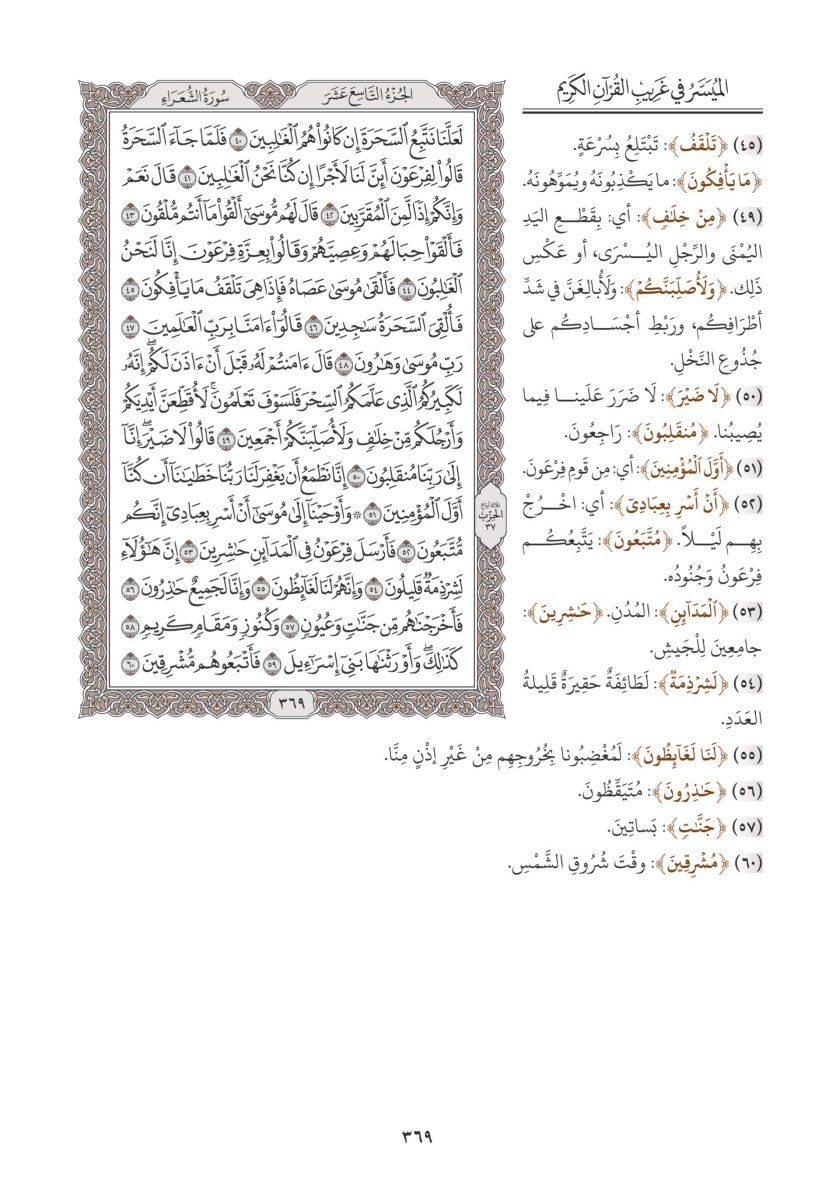 الميسر في غريب القرآن الكريم
(٤٥) ﴿تَلۡقَفُ﴾: تَبْتَلِعُ بِسُرْعَةٍ.
﴿مَا يَأۡفِكُونَ﴾: ما يَكْذِبُونَهُ ويُمَوِّهُونَهُ.
(٤٩) ﴿مِنۡ خِلَٰفٖ﴾: أي: بِقَطْعِ اليَدِ
اليُمْنَى والرِّجْلِ اليُسْرَى، أو عَكْسِ
ذَلِك. ﴿وَلَأُصَلِّبَنَّكُمۡ﴾: وَلَأُبالِغَنَّ في شَدِّ
أطْرَافِكُم، ورَبْطِ أجْسَادِكُم على
جُذُوعِ النَّخْلِ.
(٥٠) ﴿لَا ضَيۡرَ﴾: لَا ضَرَرَ عَلَينا فِيما
يُصِيبُنا. ﴿مُنقَلِبُونَ﴾: رَاجِعُونَ.
(٥١) ﴿أَوَّلَ ٱلۡمُؤۡمِنِينَ﴾: أي: مِن قَومِ فِرْعَونَ.
(٥٢) ﴿أَنۡ أَسۡرِ بِعِبَادِيٓ﴾: أي: اخْرُجْ
بِهِم لَيْلاً. ﴿مُتَّبَعُونَ﴾: يَتَّبِعُكُم
فِرْعَونُ وَجُنُودُه.
(٥٣) ﴿ٱلۡمَدَآئِنِ﴾: المُدُنِ. ﴿حَٰشِرِينَ﴾:
جامِعِينَ لِلْجَيشِ.
(٥٤) ﴿لَشِرۡذِمَةٞ﴾: لَطَائِفَةٌ حَقِيرَةٌ قَلِيلةُ
العَدَدِ.
سُورَةُ الشُّعَرَاءِ الجُزْءُ التَّاسِعَ عَشَرَ
لَعَلَّنَا نَتَّبِعُ ٱلسَّحَرَةَ إِن كَانُواْ هُمُ ٱلۡغَٰلِبِينَ ٤٠ فَلَمَّا جَآءَ ٱلسَّحَرَةُ
قَالُواْ لِفِرۡعَوۡنَ أَئِنَّ لَنَا لَأَجۡرًا إِن كُنَّا نَحۡنُ ٱلۡغَٰلِبِينَ ٤١ قَالَ نَعَمۡ
وَإِنَّكُمۡ إِذٗا لَّمِنَ ٱلۡمُقَرَّبِينَ ٤٢ قَالَ لَهُم مُّوسَىٰٓ أَلۡقُواْ مَآ أَنتُم مُّلۡقُونَ ٤٣
فَأَلۡقَوۡاْ حِبَالَهُمۡ وَعِصِيَّهُمۡ وَقَالُواْ بِعِزَّةِ فِرۡعَوۡنَ إِنَّا لَنَحۡنُ
ٱلۡغَٰلِبُونَ ٤٤ فَأَلۡقَىٰ مُوسَىٰ عَصَاهُ فَإِذَا هِيَ تَلۡقَفُ مَا يَأۡفِكُونَ ٤٥
فَأُلۡقِيَ ٱلسَّحَرَةُ سَٰجِدِينَ ٤٦ قَالُوٓاْ ءَامَنَّا بِرَبِّ ٱلۡعَٰلَمِينَ ٤٧
رَبِّ مُوسَىٰ وَهَٰرُونَ ٤٨ قَالَ ءَامَنتُمۡ لَهُۥ قَبۡلَ أَنۡ ءَاذَنَ لَكُمۡۖ إِنَّهُۥ
لَكَبِيرُكُمُ ٱلَّذِي عَلَّمَكُمُ ٱلسِّحۡرَ فَلَسَوۡفَ تَعۡلَمُونَۚ لَأُقَطِّعَنَّ أَيۡدِيَكُمۡ
وَأَرۡجُلَكُم مِّنۡ خِلَٰفٖ وَلَأُصَلِّبَنَّكُمۡ أَجۡمَعِينَ ٤٩ قَالُواْ لَا ضَيۡرَۖ إِنَّآ
إِلَىٰ رَبِّنَا مُنقَلِبُونَ ٥٠ إِنَّا نَطۡمَعُ أَن يَغۡفِرَ لَنَا رَبُّنَا خَطَٰيَٰنَآ أَن كُنَّآ
أَوَّلَ ٱلۡمُؤۡمِنِينَ ٥١ ۞ وَأَوۡحَيۡنَآ إِلَىٰ مُوسَىٰٓ أَنۡ أَسۡرِ بِعِبَادِيٓ إِنَّكُم
مُّتَّبَعُونَ ٥٢ فَأَرۡسَلَ فِرۡعَوۡنُ فِي ٱلۡمَدَآئِنِ حَٰشِرِينَ ٥٣ إِنَّ هَٰٓؤُلَآءِ
لَشِرۡذِمَةٞ قَلِيلُونَ ٥٤ وَإِنَّهُمۡ لَنَا لَغَآئِظُونَ ٥٥ وَإِنَّا لَجَمِيعٌ حَٰذِرُونَ ٥٦
فَأَخۡرَجۡنَٰهُم مِّن جَنَّٰتٖ وَعُيُونٖ ٥٧ وَكُنُوزٖ وَمَقَامٖ كَرِيمٖ ٥٨
كَذَٰلِكَۖ وَأَوۡرَثۡنَٰهَا بَنِيٓ إِسۡرَٰٓءِيلَ ٥٩ فَأَتۡبَعُوهُم مُّشۡرِقِينَ ٦٠
ثلاثة أرباع
الحزب
٣٧
٣٦٩
(٥٥) ﴿لَنَا لَغَآئِظُونَ﴾: لَمُغْضِبُونا بِخُرُوجِهِم مِنْ غَيْرِ إذْنٍ مِنَّا.
(٥٦) ﴿حَٰذِرُونَ﴾: مُتَيَقِّظُونَ.
(٥٧) ﴿جَنَّٰتٖ﴾: بَساتِينَ.
(٦٠) ﴿مُشۡرِقِينَ﴾: وقْتَ شُرُوقِ الشَّمْسِ.
٣٦٩